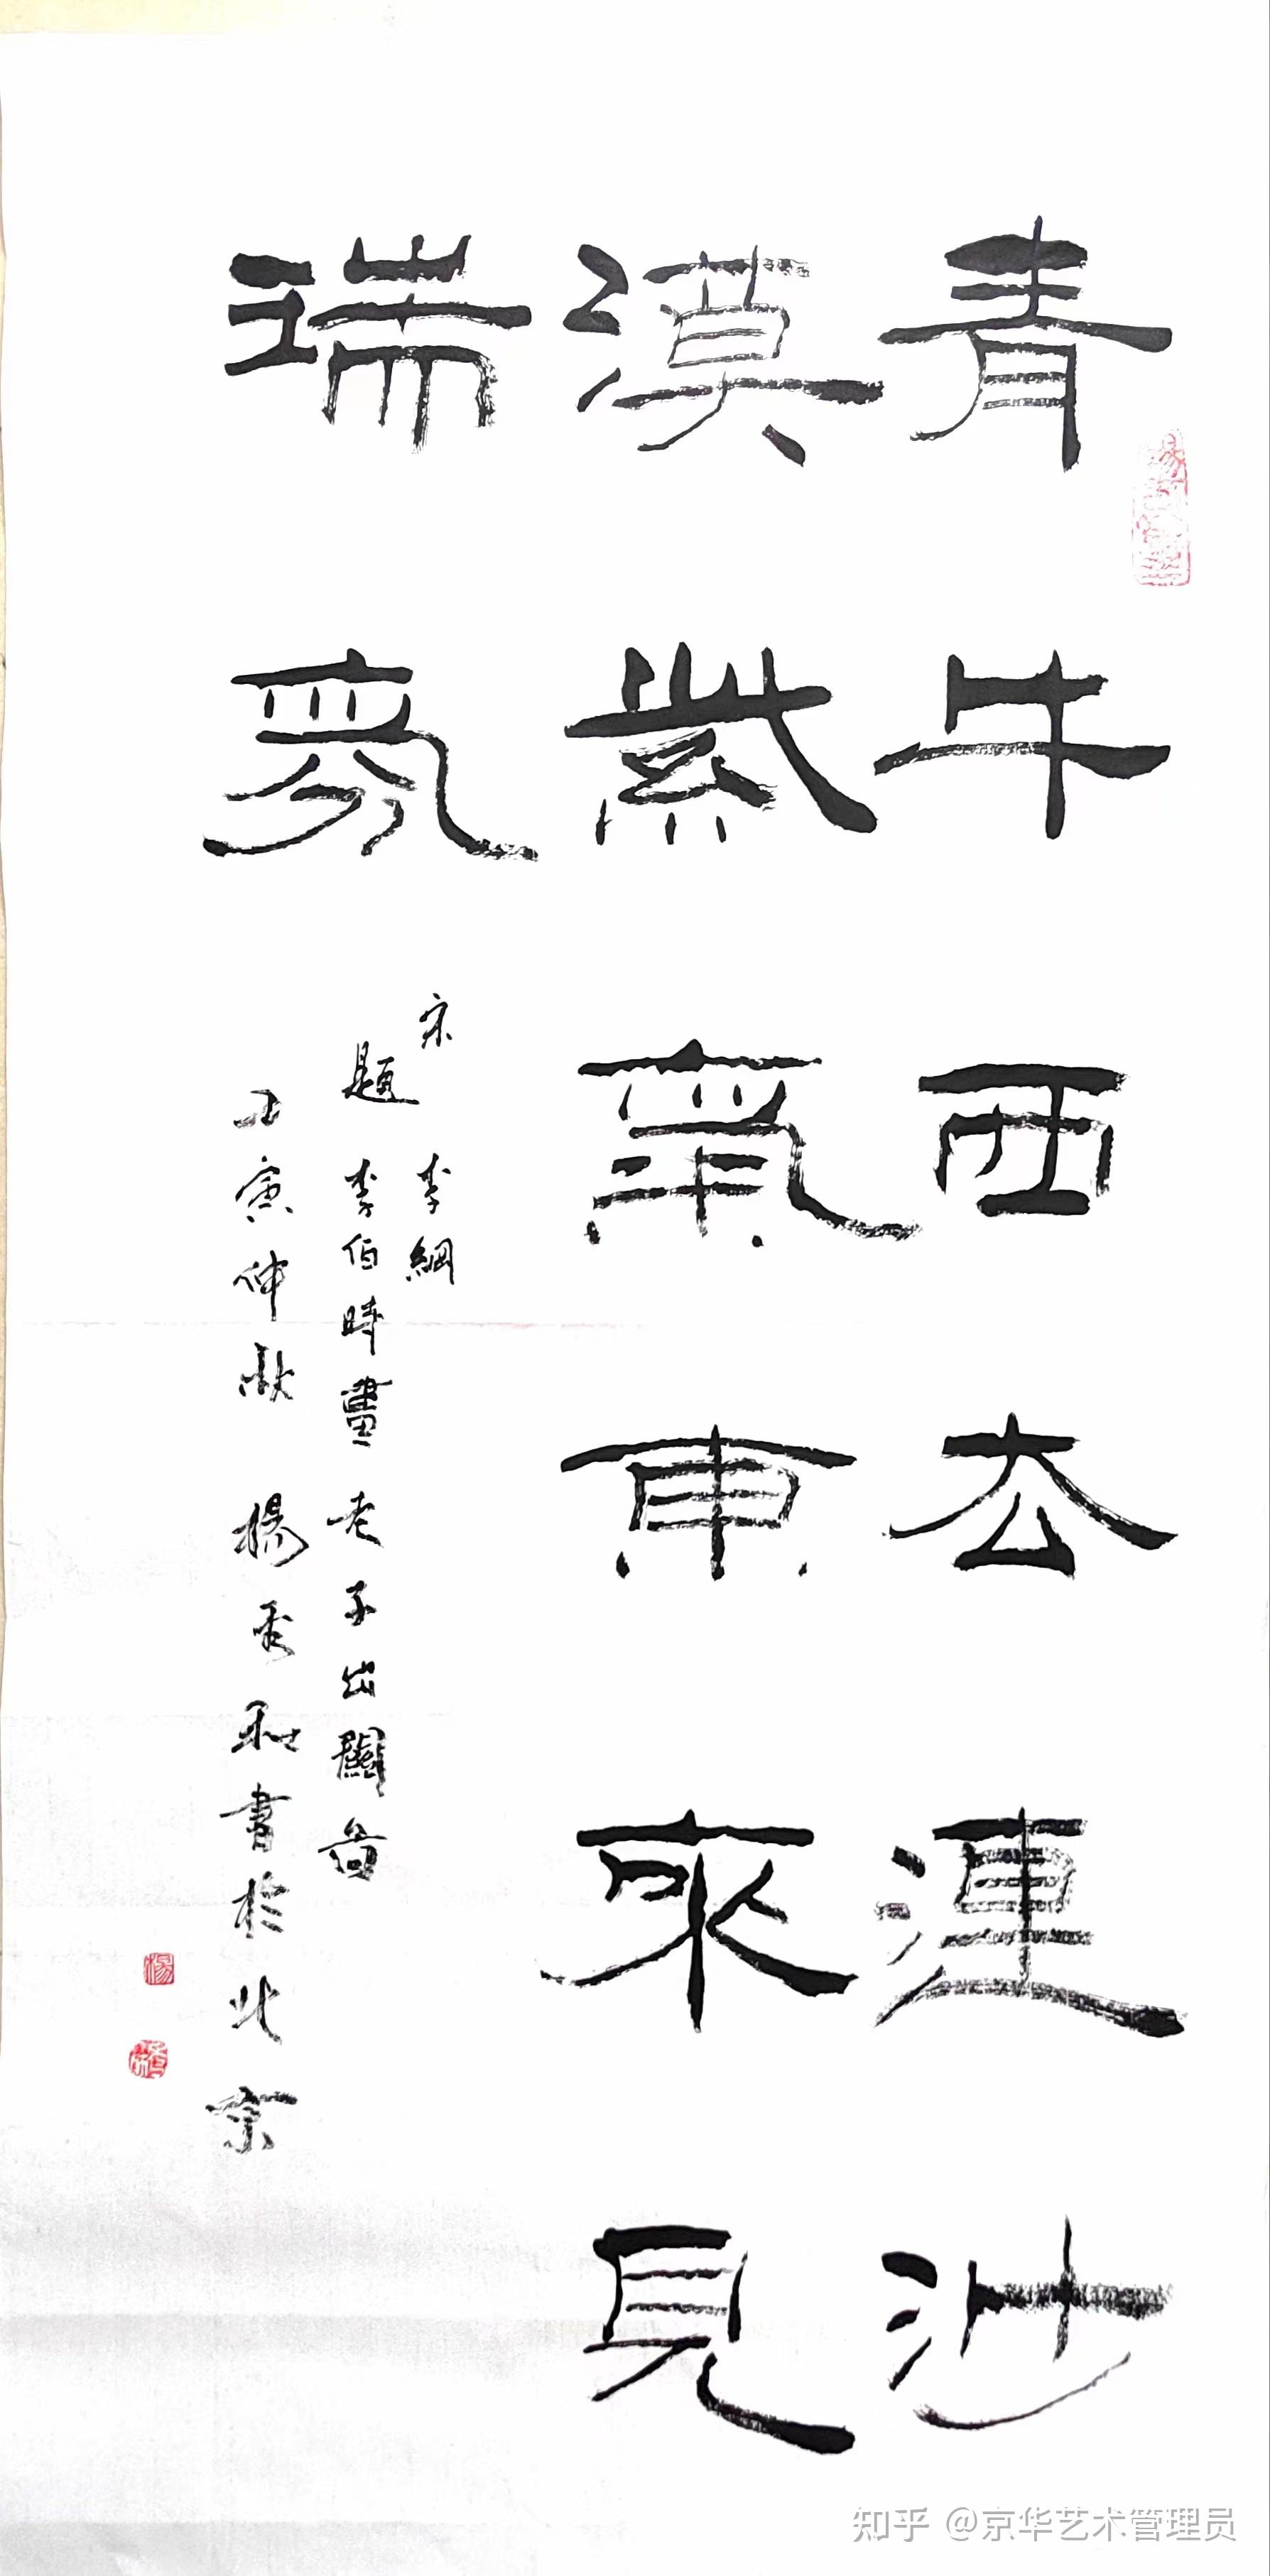 青牛西去連沙
漠紫氣東來見
瑞氛
宋 李綱
題李伯時畫老子出關圖
壬寅仲秋 楊秀和書於北京
楊
知乎 @京华艺术管理员